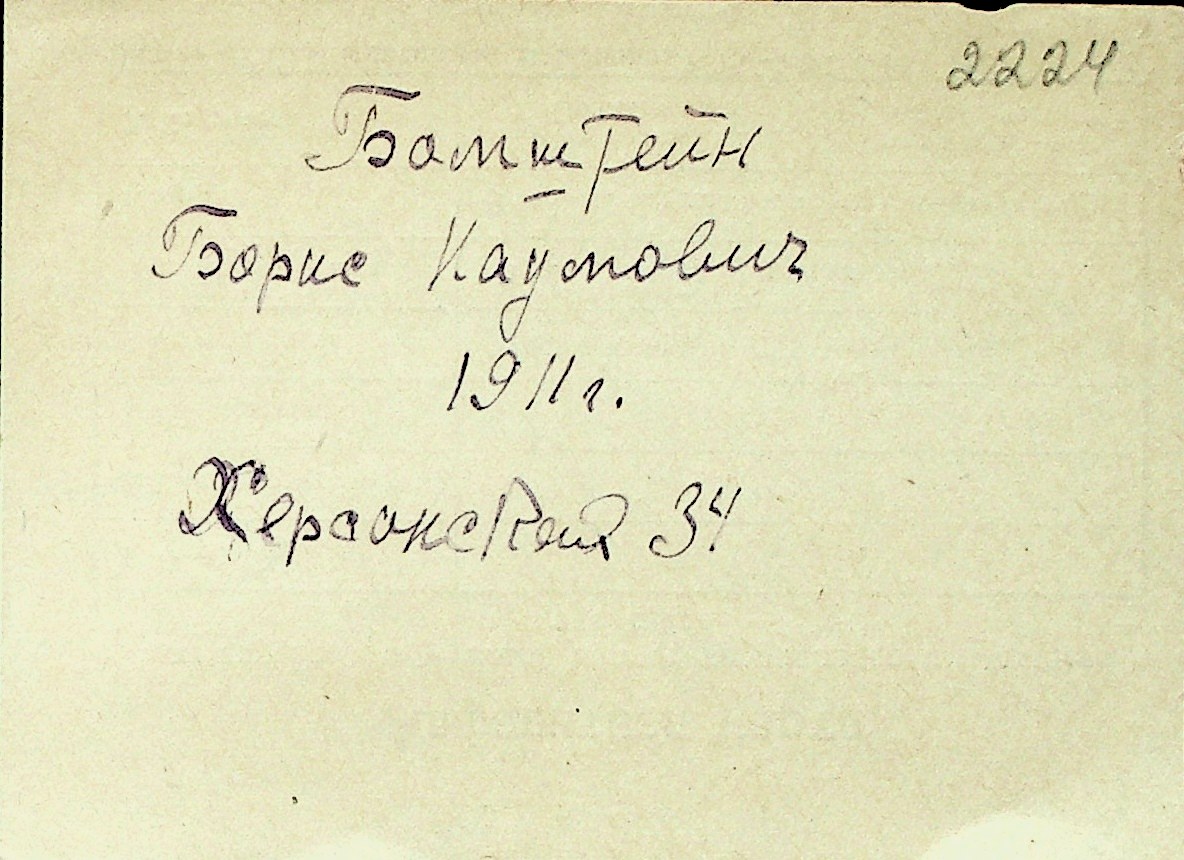 2224
Бомштейн
Борис Наумович
1911 г.
Херсонская 34